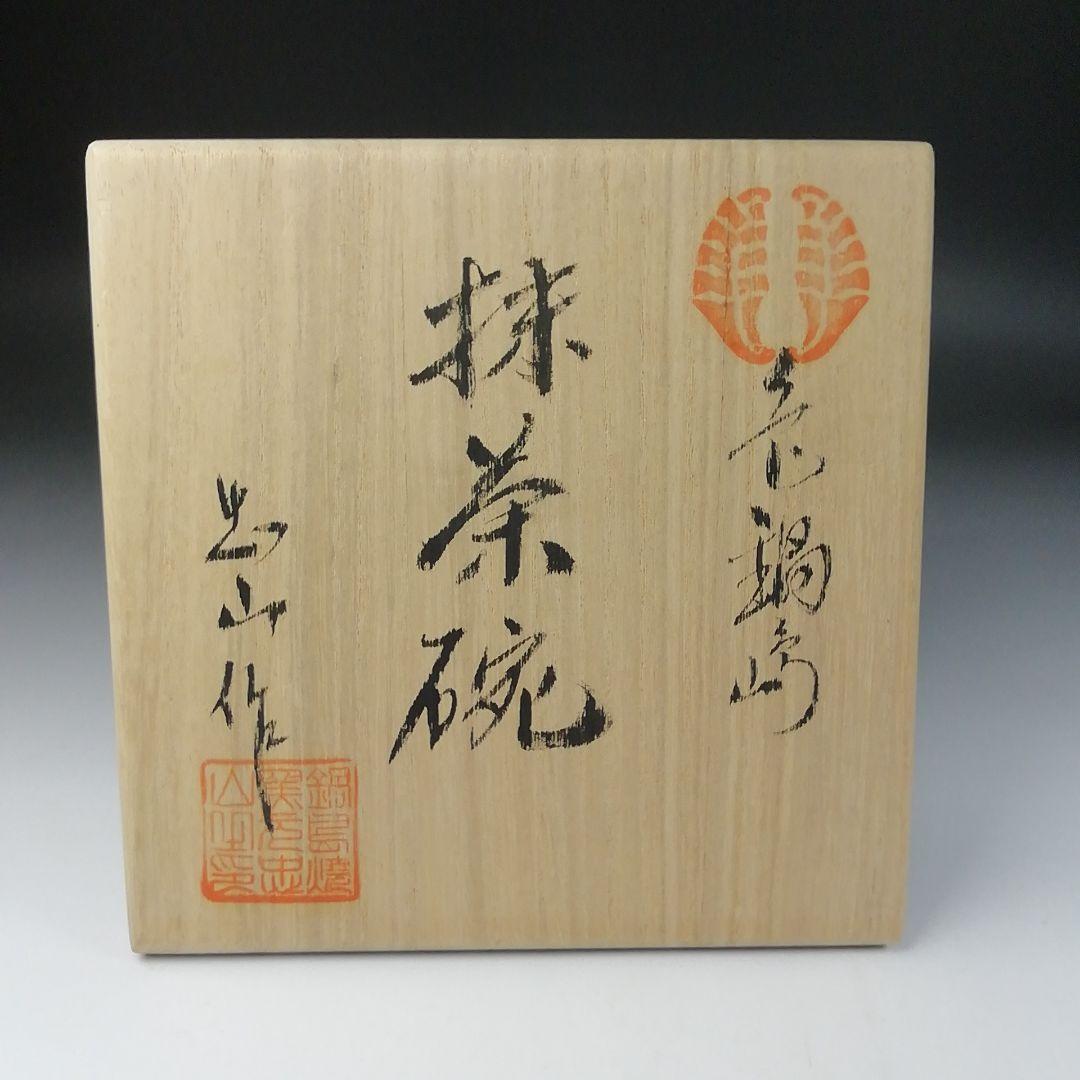 色鍋島
抹茶碗
忠山作
鍋島焼
窯元忠
山之印